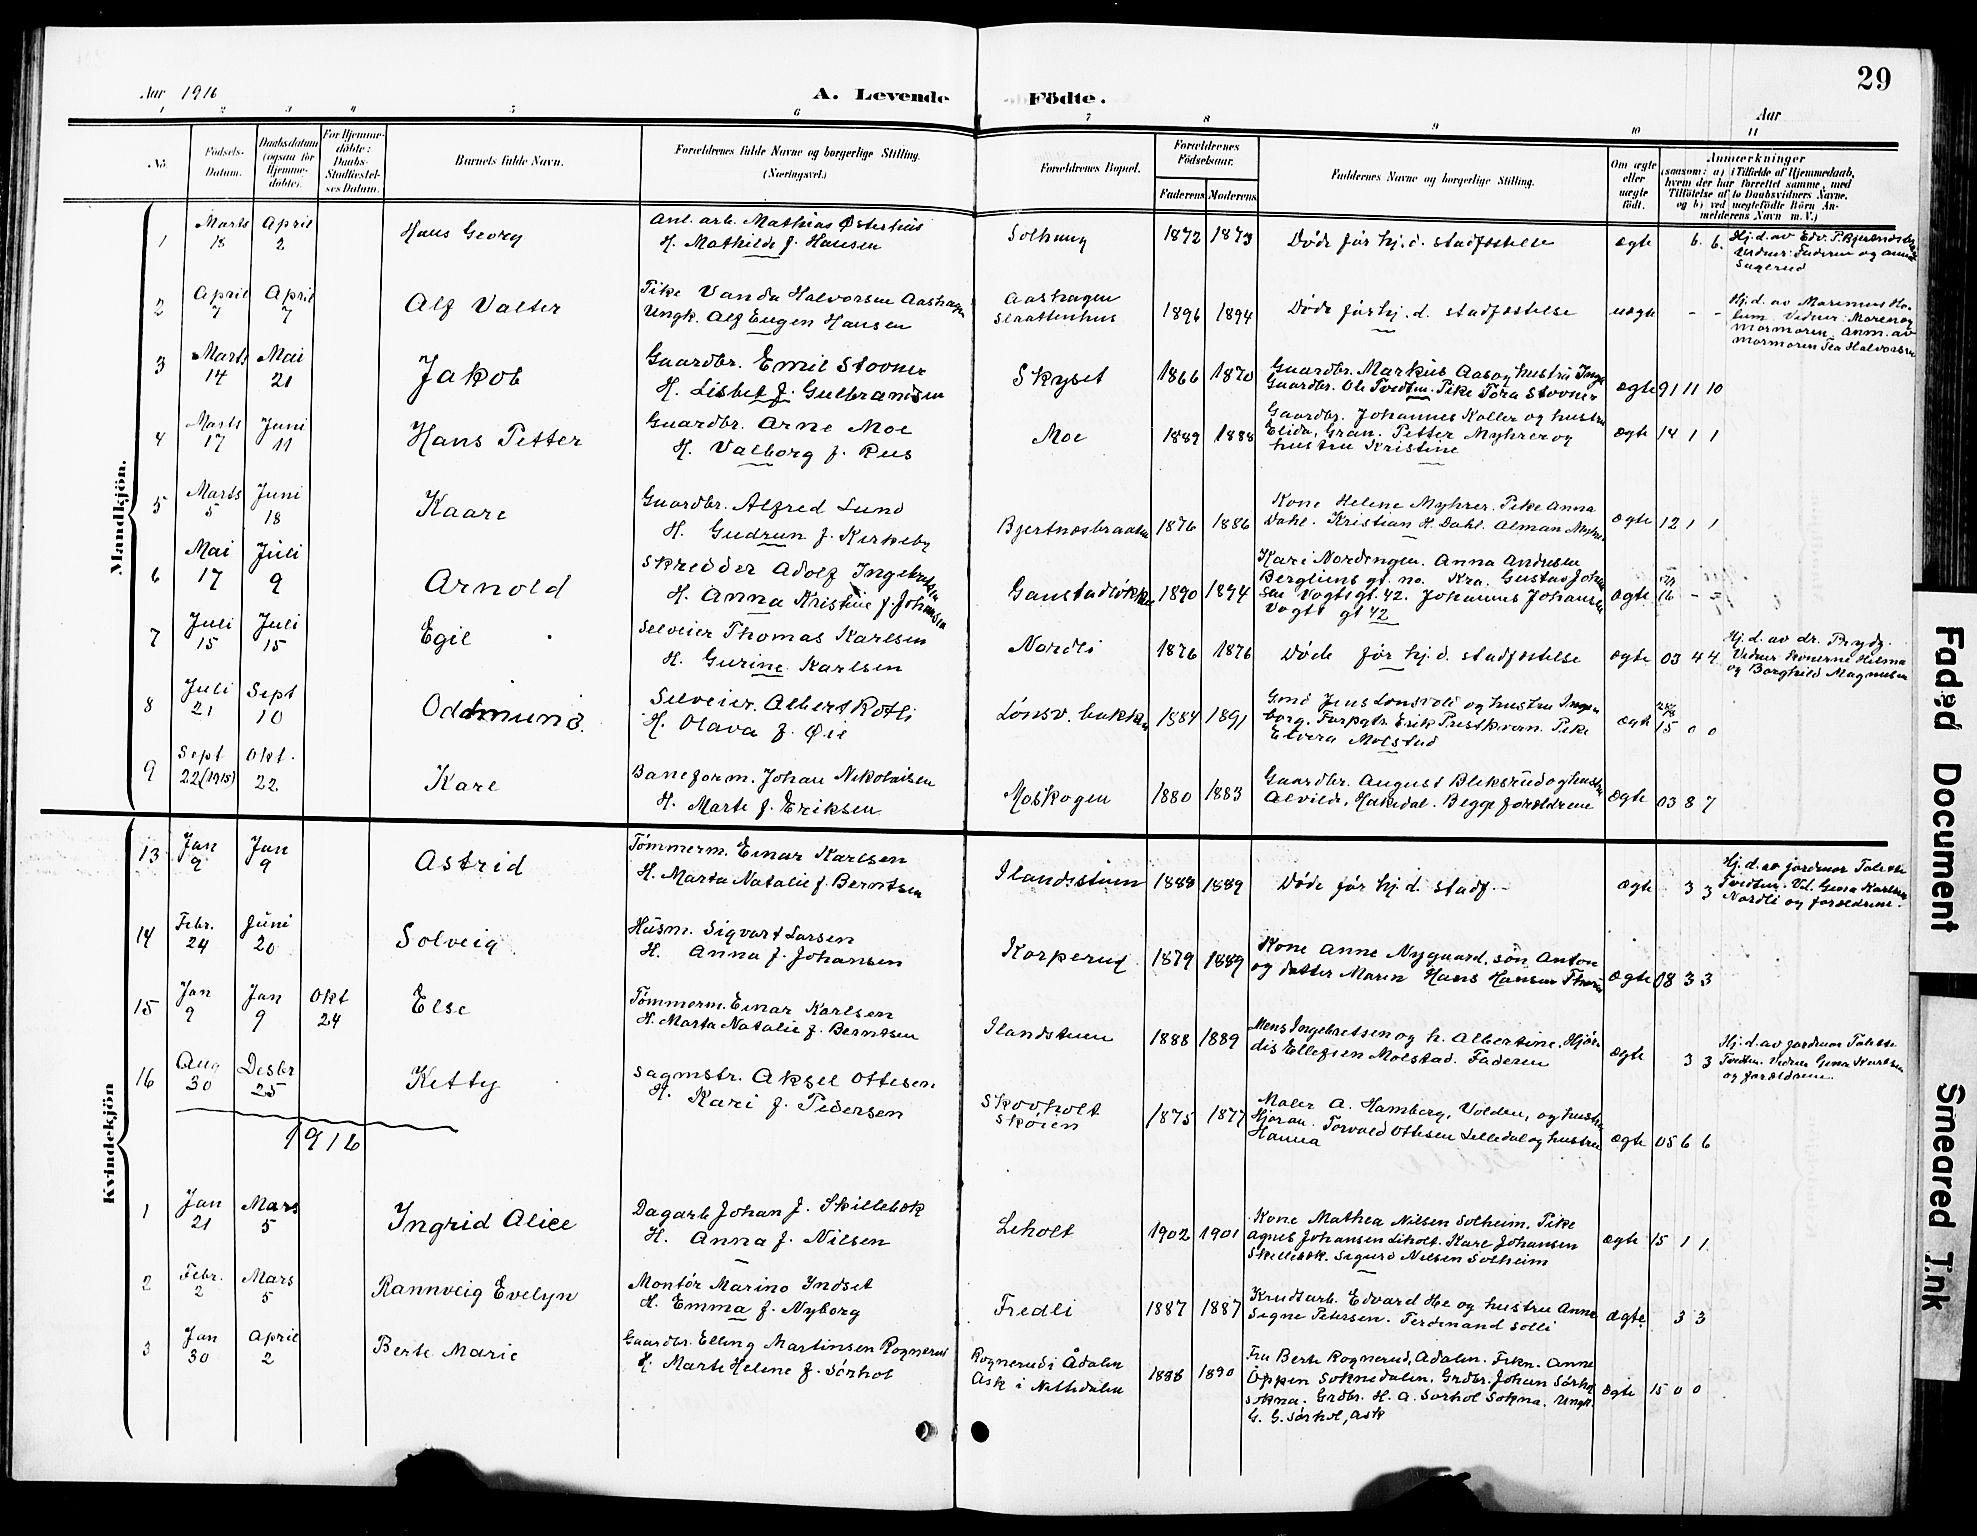 29
Aar 1916
A. Levende Födte.
Aar
1 2 3 4 5 6 7 8 9 10 11
No
Födsels-Datum.
Daabsdatum (ogsaa for Hjemme-döbte).
For Hjemme-döbte: Daabs-Stadfæstel-ses Datum.
Barnets fulde Navn.
Forældrenes fulde Navne og borgerlige Stilling. (Næringsvei.)
Forældrenes Bopæl.
Forældrenes Födselsaar.
Faderens Moderens
Faddernes Navne og borgerlige Stilling.
Om ægte eller uægte födt.
Anmærkninger
(saasom: a) i Tilfælde af Hjemmedaab, hvem der har forrettet samme, med Tilföielse af to Daabsvidners Navne. og b) ved uægtefödte Börn An-melderens Navn m. V.)
Mandkjön.
1 Marts 18 April 2 Hans Georg
Anl. arb. Mathias Østeshus
H. Mathilde f. Hansen
Solhaug 1872 1873 Døde før hj. d. stadfæstelse ægte 6. 6.
Hj. d. av Edv. P. Bjertnds
Vidner: Faderen og Anna
Sagerud
2 April 7 April 7 Alf Valter
Pike Vanda Halvorsen Aashagen
Ungk. Alf Eugen Hansen
Aashagen
Slaattenhus
1896 1894 Døde før hj. d. stadfæstelse uægte - -
Hj. d. av Marenus Ho-
lum. Vidner: Moren og
mormoren. Anm. av
mormoren Tea Halvorsen
3 Marts 14 Mai 21 Jakob
Gaardbr. Emil Stovner
H. Lisbet f. Gulbrandsen
Skyset 1866 1870
Gaardbr. Markus Aas og hustru Inga
Gaardbr. Ole Tvedten. Pike Tora Stovner
ægte 91 11 10
4 Marts 17 Juni 11 Hans Petter
Gaardbr. Arne Moe
H. Valborg f. Rus
Moe 1889 1888
Gaardbr. Johannes Koller og hustru
Elida, Gran. Petter Myhrer og
hustru Kristine
ægte 14 1 1
5 Marts 5 Juni 18 Kaare
Gaardbr. Alfred Lund
H. Gudrun f. Kirkeby
Bjertnæsbraaten 1876 1886
Kone Helene Myhrer. Pike Anna
Dahl. Kristian H. Dahl. Alman Myhrer
ægte 12 1 1
6 Mai 17 Juli 9 Arnold
Skredder Adolf Ingebretsen
H. Anna Kristine f. Johansen
Ganstadløkken 1890 1894
Kari Nordengen. Anna Andresen
Bergliens gt. no. Kra. Gustav Johan
sen Vogts gt. 42. Johannes Johansen
Vogts gt 42
ægte 16 - -
7 Juli 15 Juli 15 Egil
Selveier Thomas Karlsen
H. Gurine Karlsen
Nordli 1876 1876 Døde før hj. d. stadfæstelse ægte 03 4 4
Hj. d. av dr. Prydz.
Vidner: Konerne Hilma
og Borghild Magnusen
8 Juli 21 Sept 10 Oddmund.
Selveier. Albert Rotli
H. Olava f. Øie
Lønsv. bakken 1884 1891
Gmd Jens Lønsvoll og hustru Inge-
borg. Forpgtr. Erik Prestkvern. Pike
Elvera Molstad
ægte 15 0 0
9 Sept 22 (1915) Okt. 22. Kare
Baneform. Johan Nikolaisen
H. Marte f. Eriksen
Moskogen 1880 1883
Gaardbr. August Bleksrud og hustru
Alvilde, Hakedal. Begge forældrene
ægte 03 8 7
Kvindekjön
13 Jan 9 Jan 9 Astrid
Tømmerm. Einar Karlsen
H. Marta Natalie f. Berntsen
Ilandsstuen 1888 1889 Døde før hj. d. stadf. ægte 3 3
Hj. d. av jordmor Talette
Tvedten. Vid. Gena Karlsen
Nordli og forældrene.
14 Febr. 24 Juni 20 Solveig
Husm. Sigvart Larsen
H. Anna f. Johansen
Korperud 1879 1889
Kone Anne Nygaard, søn Anton
og datter Maren Hans Hansen
ægte 08 3 3
15 Jan 9 Jan 9 Okt 24 Else
Tømmerm. Einar Karlsen
H. Marta Natalie f. Berntsen
Ilandstuen 1888 1889
Mens Ingebretsen og h. Albertine. Hjør-
dis Ellefsen Molstad. Faderen
ægte 3 3
Hj. d. av jordmor Talette
Tvedten. Vidner Gena Karlsen
og forældrene.
16 Aug 30 Desbr 25 Ketty
Sagmstr. Aksel Ottesen
H. Kari f. Pedersen
Skovholt
Skøien
1875 1877
Maler A. Hamberg, Volden, og hustru
Hjøran. Torvald Ottesen Lilledal og hustru
Hanna
ægte 05 6 6
1916
1 Jan 21 Mars 5 Ingrid Alice
Dagarb Johan J. Skillebæk
H. Anna f. Nilsen
Leholt 1902 1901
Kone Mathea Nilsen Solheim. Pike
Agnes Johansen Leholt. Karl Johansen
Skillebæk. Sigurd Nilsen Solheim
ægte 15 1 1.
2 Febr. 2 Mars 5 Rannveig Evelyn
Montør Marino Yndset
H. Emma f. Nyborg
Fredli 1887 1887
Krudtarb. Edvard He og hustru Anne
Signe Petersen. Ferdinand Solli
ægte 3 3
3 Jan 30 April 2 Berte Marie
Gaardbr. Elling Martinsen Rognerud
H. Marte Helene f. Sørhol
Rognerud i Ådalen
Ask i Nattedalen
1888 1890
Fru Berte Rognerud, Ådalen. Frkn. Anne
Oppen Soknedalen. Grdbr. Johan Sørhol
Sokna. Grdbr. H. A. Sørhol Sokna. Ungk.
G. G. Sørhol, Ask
ægte 15 0 0
Faded Document
Smeared Ink